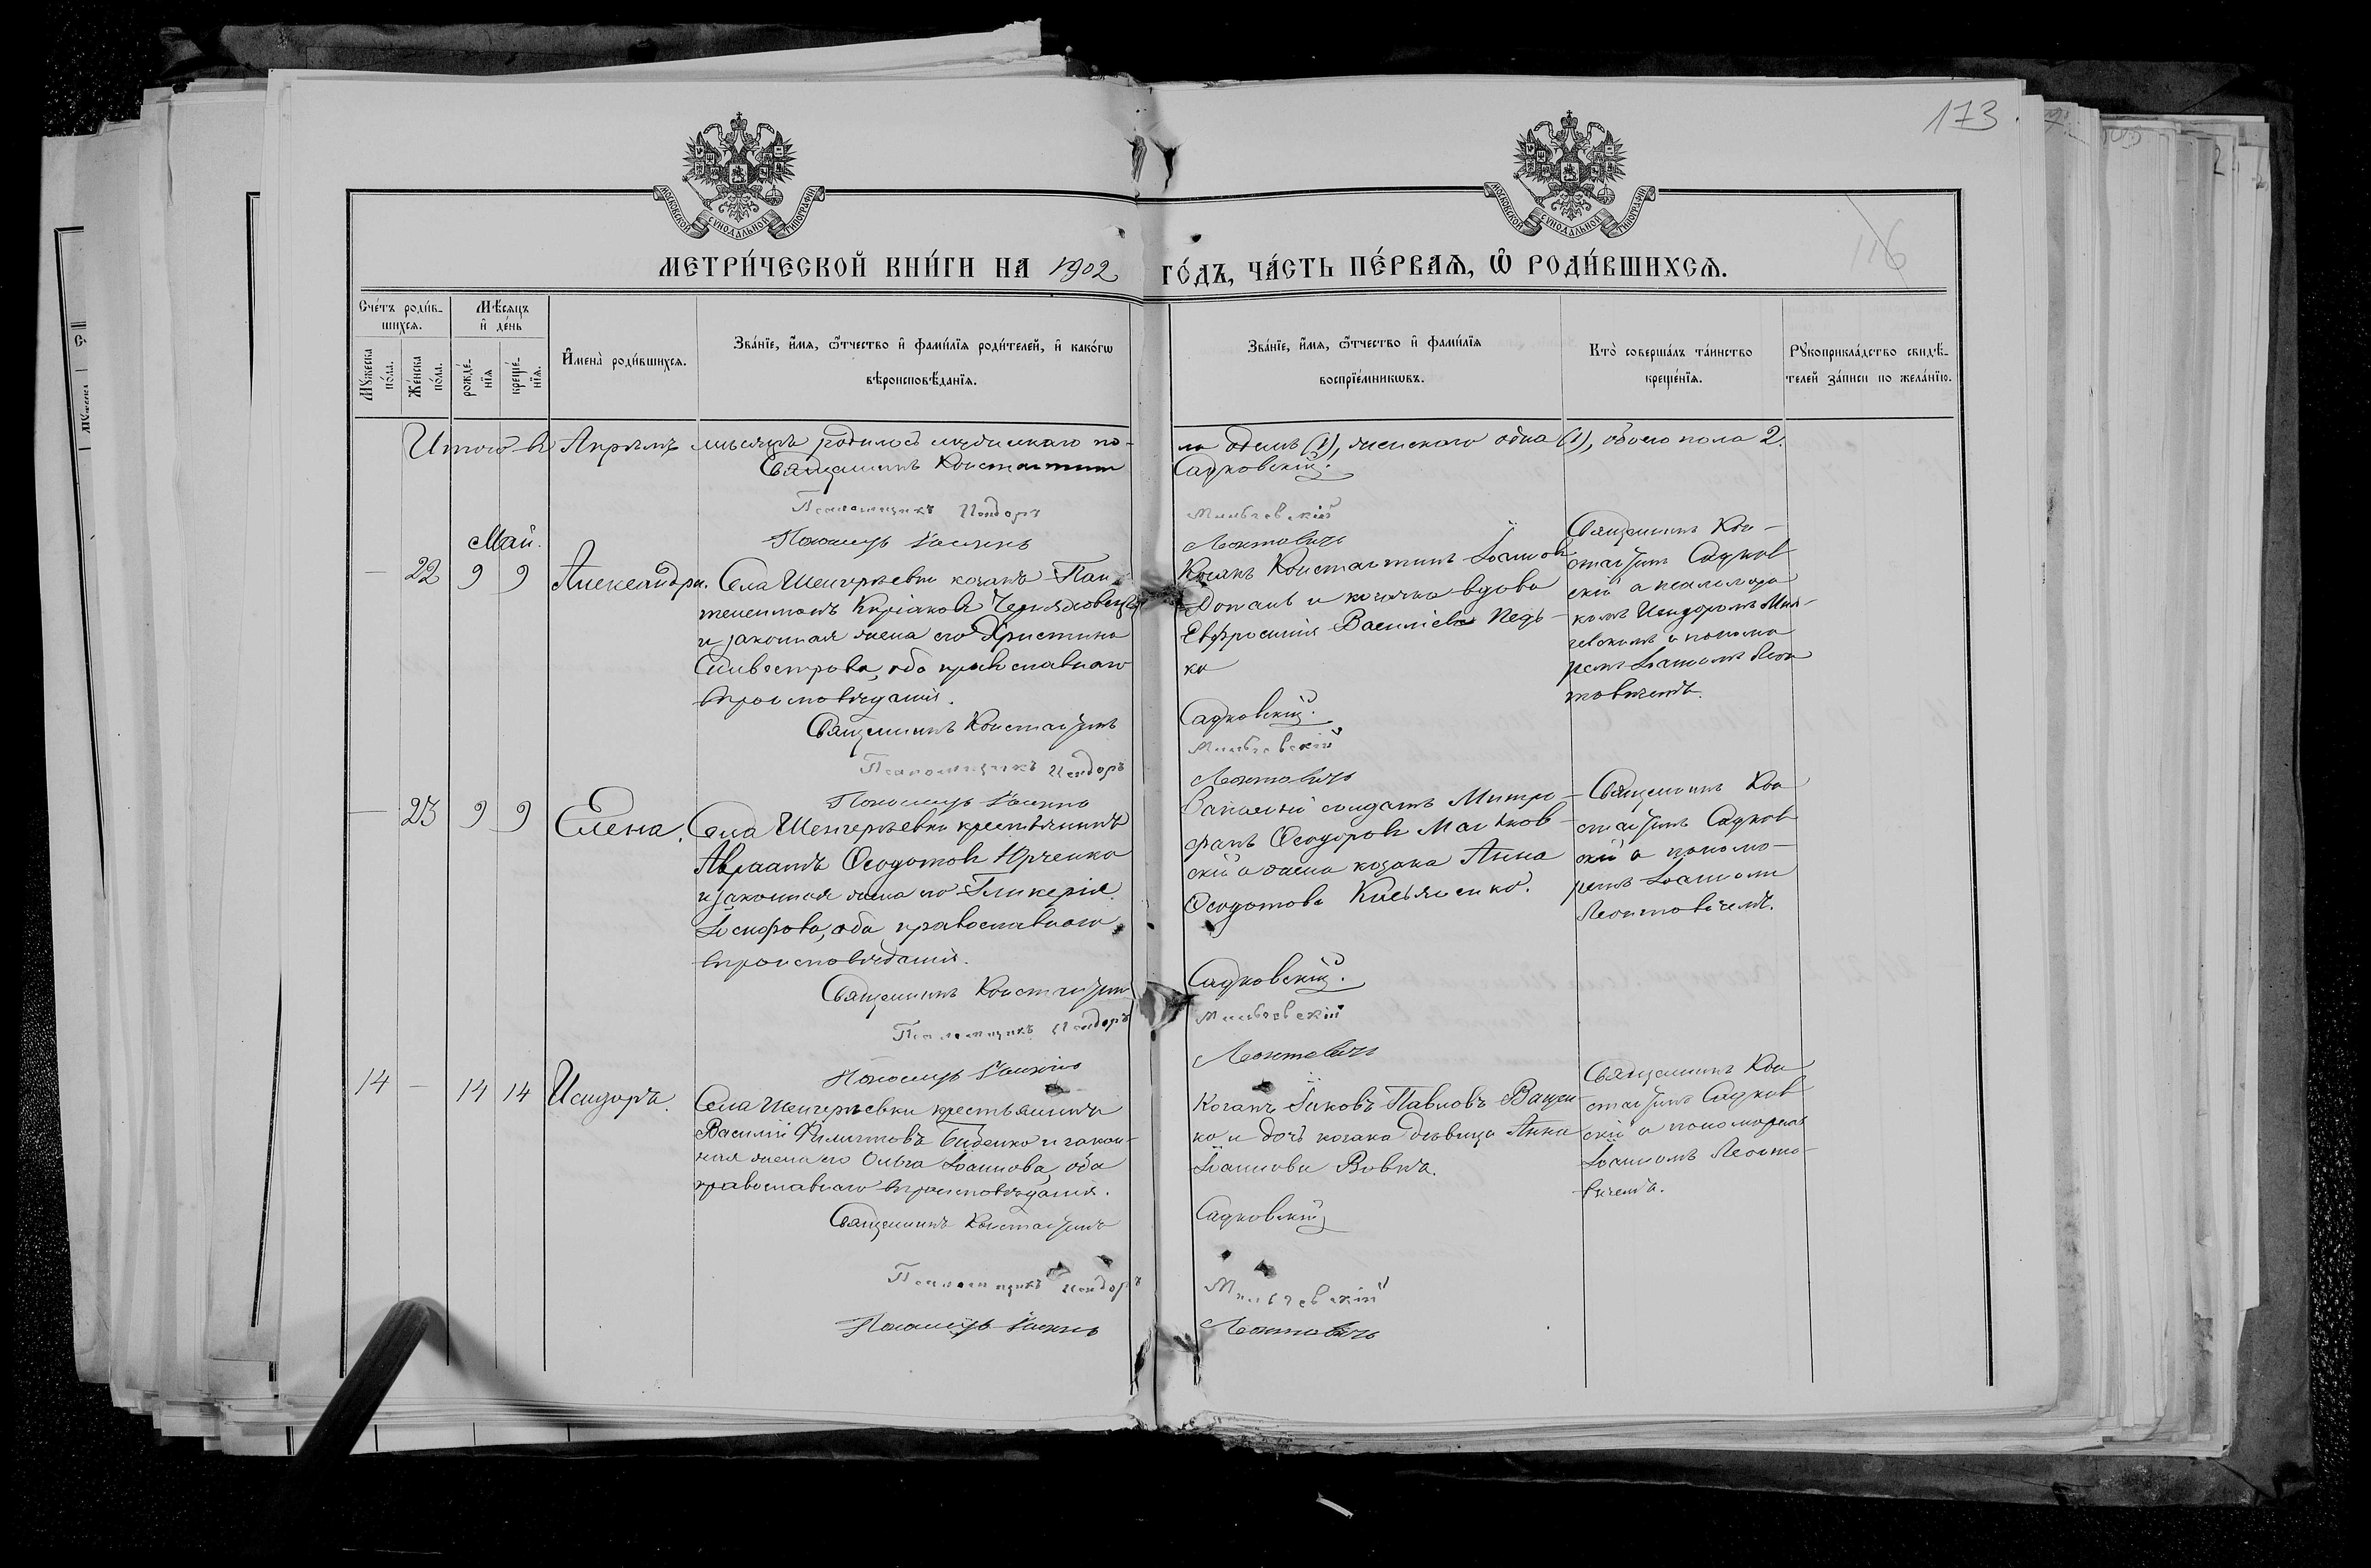 173
116
МОСКОВСКОЙ СѴНОДАЛЬНОЙ ТИПОГРАФІИ
МОСКОВСКОЙ СѴНОДАЛЬНОЙ ТИПОГРАФІИ
МЕТРИ́ЧЕСКОЙ КНИ́ГИ НА 1902 ГО́ДЪ, ЧА́СТЬ ПЕ́РВАѦ, Ѡ РОДИ́ВШИХСѦ.
Счетъ роди́в-
шихсѧ.
Мꙋжеска по́ла.
Же́нска по́ла.
Мѣ́сѧцъ и де́нь
рожде́-нїѧ
креще́-нїѧ.
И҆мена̀ роди́вшихсѧ.
Зва́нїе, и҆́мѧ, ѻ҆́тчество и҆ фами́лїѧ роди́телей, и҆ како́гѡ
вѣроисповѣ́данїѧ.
Зва́нїе, и҆́мѧ, ѻ҆́тчество и҆ фами́лїѧ
воспрїе́мникѡвъ.
Кто̀ соверша́лъ та́инство
креще́нїѧ.
Рꙋкоприкла́дство свидѣ́-
телей за́писи по жела́нїю.
Итого въ Апрѣлѣ мѣсяцѣ родилось мужескаго по-
ла одинъ (1), женскаго одна (1), обоего пола 2.
Священникъ Константинъ Садковскій.
Псаломщикъ Исидоръ
Пономарь Іоаннъ Леонтовичъ
Май.
— 22 9 9 Александра.
Села Шенгерѣевки козакъ Пан-
телеимонъ Киріаковъ
и законная жена его Христина
Сильвестрова, оба православнаго
вѣроисповѣданія.
Козакъ Константинъ Іоанновъ
и козачка вдова
Евфросинія Васильева Педь-
ко
Священникъ Кон-
стантинъ Садков-
скій съ псаломщи-
комъ Исидоромъ
и понома-
ремъ Іоанномъ Леон-
товичемъ.
Священникъ Константинъ Садковскій.
Псаломщикъ Исидоръ
Пономарь Іоаннъ Леонтовичъ
— 23 9 9 Елена.
Села Шенгерѣевки крестьянинъ
Авраамъ Ѳеодотовъ Юрченко
и законная жена его Гликерія
Іосифова, оба православнаго
вѣроисповѣданія.
Запасный солдатъ Митро-
фанъ Ѳеодоровъ
скій и жена козака Анна
Ѳеодотова
Священникъ Кон-
стантинъ Садков-
скій съ понома-
ремъ Іоанномъ
Леонтовичемъ.
Священникъ Константинъ Садковскій.
Псаломщикъ Исидоръ
Пономарь Іоаннъ Леонтовичъ
14 — 14 14 Исидоръ.
Села Шенгерѣевки крестьянинъ
Василій Филипповъ Биденко и закон-
ная жена его Ольга Іоаннова, оба
православнаго вѣроисповѣданія.
Козакъ Іаковъ Павловъ Ващен-
ко и дочь козака дѣвица Анна
Іоаннова Вовча.
Священникъ Кон-
стантинъ Садков-
скій съ пономаремъ
Іоанномъ Леонто-
вичемъ.
Священникъ Константинъ Садковскій
Псаломщикъ Исидоръ
Пономарь Іоаннъ Леонтовичъ